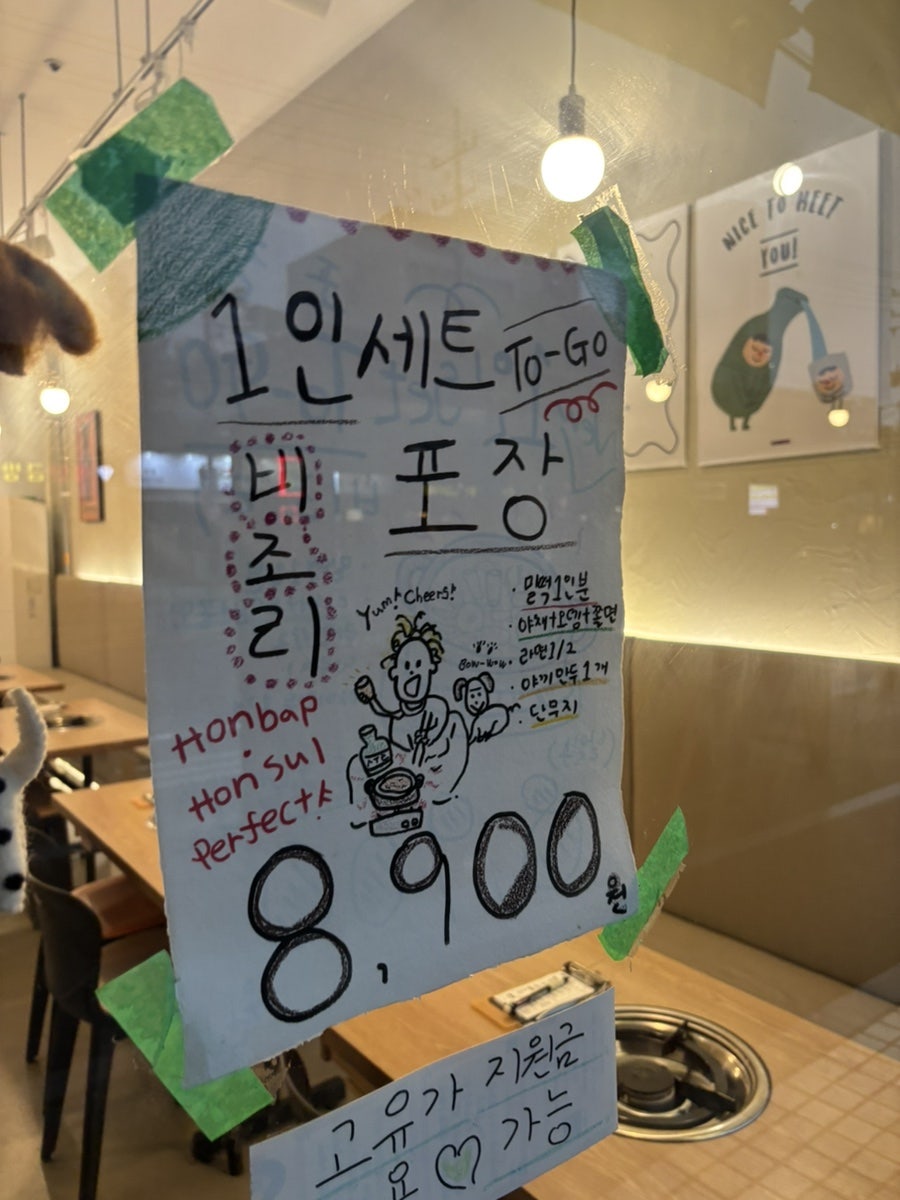 1인세트 To-Go
비조리
포장
Yum! Cheers!
· 밀떡1인분
· 야채+오뎅+쫄면
· 라면 1/2
· 야끼만두 1개
· 단무지
Honbap
·
Honsul
perfect!
8,900원
고유가 지원금
요♡가능
NICE TO MEET
YOU!